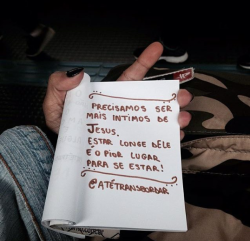 PRECISAMOS SER
MAIS INTIMOS DE
JESUS.
ESTAR LONGE DELE
É O PIOR LUGAR
PARA SE ESTAR!
@ATÉTRANSBORDAR